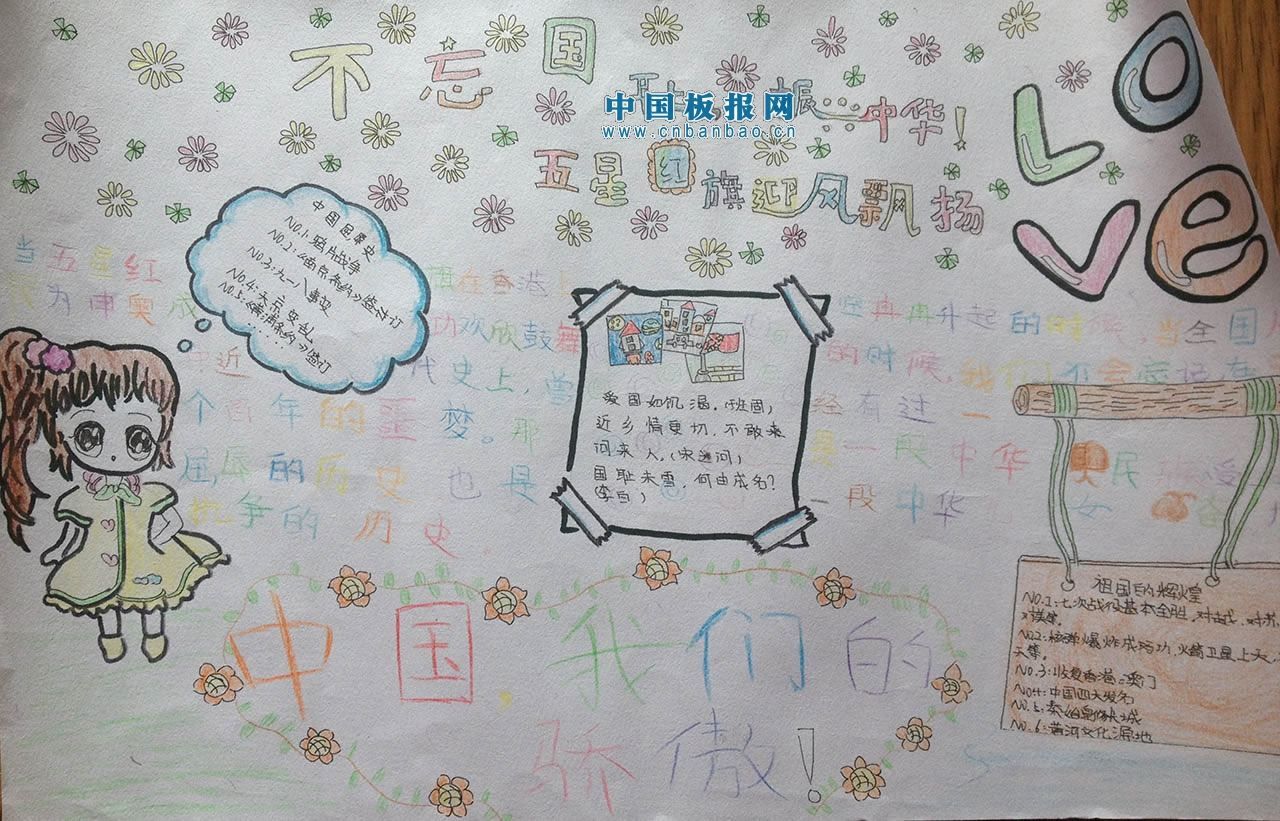 不忘国耻,振...中华!
中国板报网
www.cnbanbao.cn
五星红旗迎风飘扬
LOVE
中国屈辱史
NO.1:鸦片战争
NO.2:《南京条约》签订
NO.3:九一八事变
NO.4:天京变乱
NO.5:《黄浦条约》签订
......
当五星红
再在香港上
冉冉升起的时候,当全国
为申奥成
功欢欣鼓舞
的时候,我们不会忘记在
近
代史上,曾
经有过一
个百年的噩梦。那
是一段中华
民
屈辱的历史也是
一段中华
女
抗争的历史.
爱国如饥渴.(班固)
近乡情更切,不敢来
问来人.(宋逊问)
国耻未雪,何由成名?
(李白)
祖国的辉煌
NO.1:七次战役基本全胜,对
NO.2:核弹爆炸成功,火箭卫星上天,
天等.
NO.3:收复香港、澳门
NO4:中国四大发名
NO.5:秦始皇修长城
NO.6:黄河文化源地
中国,我们的
骄傲!